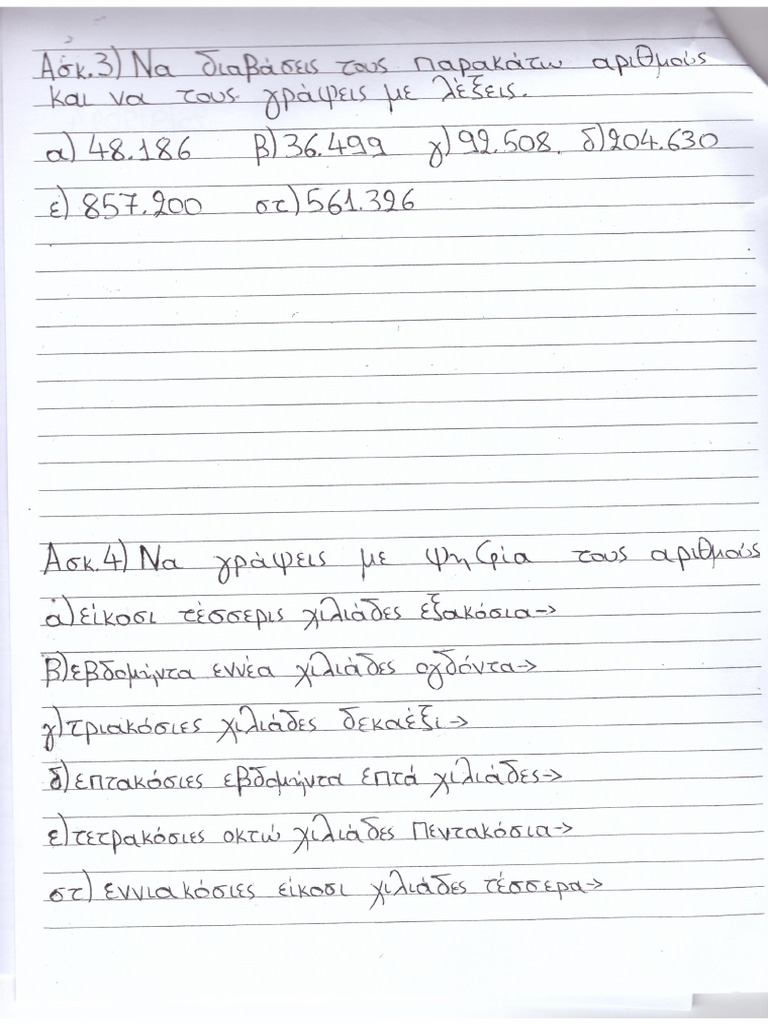 Ασκ.3) Να διαβάσεις τους παρακάτω αριθμούς
και να τους γράψεις με λέξεις.
α) 48.186 β) 36.499 γ) 92.508. δ) 204.630
ε) 857.200 στ) 561.326
Ασκ.4) Να γράψεις με ψηφία τους αριθμούς
α) είκοσι τέσσερις χιλιάδες εξακόσια→
β) εβδομήντα εννέα χιλιάδες ογδόντα→
γ) τριακόσιες χιλιάδες δεκαέξι→
δ) επτακόσιες εβδομήντα επτά χιλιάδες→
ε) τετρακόσιες οκτώ χιλιάδες πεντακόσια→
στ) εννιακόσιες είκοσι χιλιάδες τέσσερα→